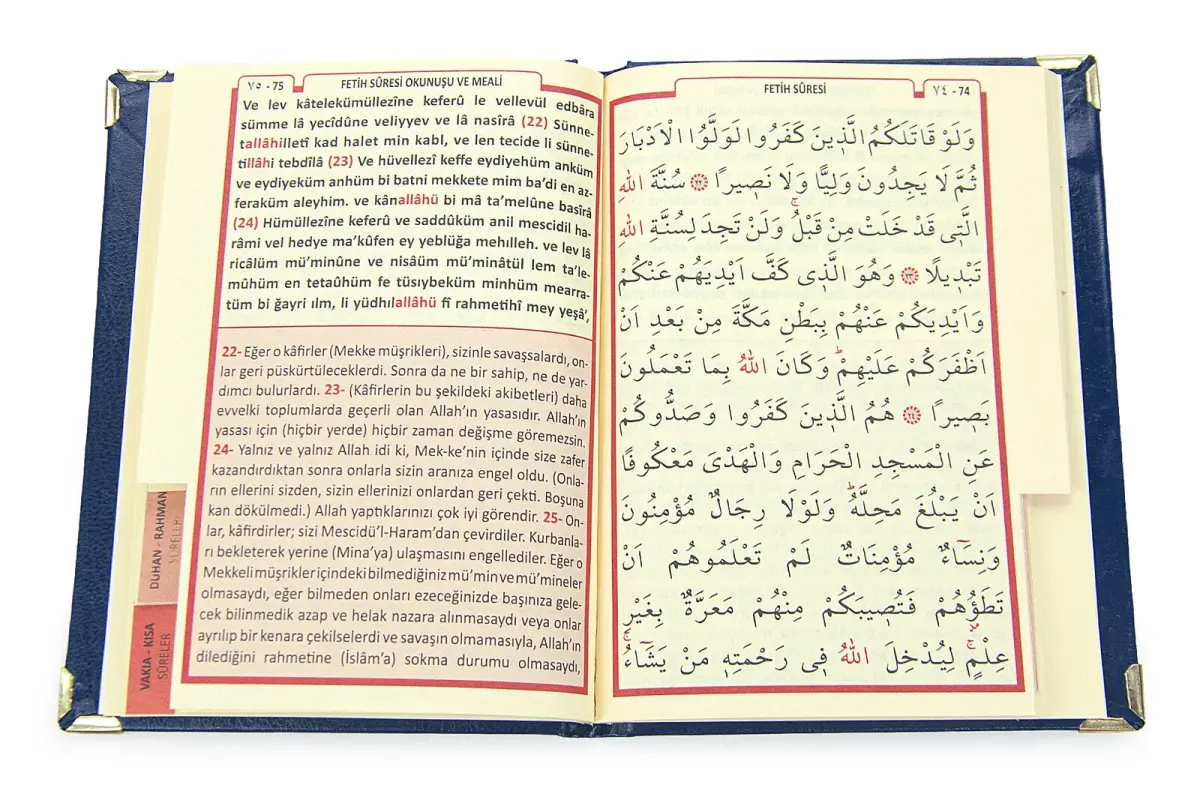 ٧٥ - 75
FETİH SÛRESİ OKUNUŞU VE MEALİ
Ve lev kâtelekümüllezîne keferû le vellevül edbâra
sümme lâ yecîdûne veliyyev ve lâ nasîrâ (22) Sünne-
tallâhilletî kad halet min kabl, ve len tecide li sünne-
tillâhi tebdîlâ (23) Ve hüvellezî keffe eydiyehüm anküm
ve eydiyeküm anhüm bi batni mekkete mim ba’di en az-
feraküm aleyhim. ve kânallâhü bi mâ ta’melûne basîrâ
(24) Hümüllezîne keferû ve saddûküm anil mescidil ha-
râmi vel hedye ma’kûfen ey yeblüğa mehılleh. ve lev lâ
ricâlüm mü’minûne ve nisâüm mü’minâtül lem ta’le-
mûhüm en tetaûhüm fe tüsıybeküm minhüm mearra-
tüm bi ğayri ılm, li yüdhılallâhü fî rahmetihî mey yeşâ’,
22- Eğer o kâfirler (Mekke müşrikleri), sizinle savaşsalardı, on-
lar geri püskürtüleceklerdi. Sonra da ne bir sahip, ne de yar-
dımcı bulurlardı. 23- (Kâfirlerin bu şekildeki akibetleri) daha
evvelki toplumlarda geçerli olan Allah’ın yasasıdır. Allah’ın
yasası için (hiçbir yerde) hiçbir zaman değişme göremezsin.
24- Yalnız ve yalnız Allah idi ki, Mek-ke’nin içinde size zafer
kazandırdıktan sonra onlarla sizin aranıza engel oldu. (Onla-
rın ellerini sizden, sizin ellerinizi onlardan geri çekti. Boşuna
kan dökülmedi.) Allah yaptıklarınızı çok iyi görendir. 25- On-
lar, kâfirdirler; sizi Mescidü’l-Haram’dan çevirdiler. Kurbanla-
rı bekleterek yerine (Mina’ya) ulaşmasını engellediler. Eğer o
Mekkeli müşrikler içindeki bilmediğiniz mü’min ve mü’mineler
olmasaydı, eğer bilmeden onları ezeceğinizde başınıza gele-
cek bilinmedik azap ve helak nazara alınmasaydı veya onlar
ayrılıp bir kenara çekilselerdi ve savaşın olmamasıyla, Allah’ın
dilediğini rahmetine (İslâm’a) sokma durumu olmasaydı,
DUHAN - RAHMAN
SÛRELER
VAKIA - KISA
SÛRELER
FETİH SÛRESİ
٧٤ - 74
وَلَوْ قَاتَلَكُمُ الَّذ۪ينَ كَفَرُوا لَوَلَّوُا الْاَدْبَارَ
ثُمَّ لَا يَجِدُونَ وَلِيًّا وَلَا نَص۪يرًا ﴿٢٢﴾ سُنَّةَ اللّٰهِ
الَّت۪ي قَدْ خَلَتْ مِنْ قَبْلُۚ وَلَنْ تَجِدَ لِسُنَّةِ اللّٰهِ
تَبْد۪يلًا ﴿٢٣﴾ وَهُوَ الَّذ۪ي كَفَّ اَيْدِيَهُمْ عَنْكُمْ
وَاَيْدِيَكُمْ عَنْهُمْ بِبَطْنِ مَكَّةَ مِنْ بَعْدِ اَنْ
اَظْفَرَكُمْ عَلَيْهِمْۜ وَكَانَ اللّٰهُ بِمَا تَعْمَلُونَ
بَص۪يرًا ﴿٢٤﴾ هُمُ الَّذ۪ينَ كَفَرُوا وَصَدُّوكُمْ
عَنِ الْمَسْجِدِ الْحَرَامِ وَالْهَدْيَ مَعْكُوفًا
اَنْ يَبْلُغَ مَحِلَّهُۜ وَلَوْلَا رِجَالٌ مُؤْمِنُونَ
وَنِسَٓاءٌ مُؤْمِنَاتٌ لَمْ تَعْلَمُوهُمْ اَنْ
تَطَؤُ۫هُمْ فَتُص۪يبَكُمْ مِنْهُمْ مَعَرَّةٌ بِغَيْرِ
عِلْمٍۚ لِيُدْخِلَ اللّٰهُ ف۪ي رَحْمَتِه۪ مَنْ يَشَٓاءُۚ